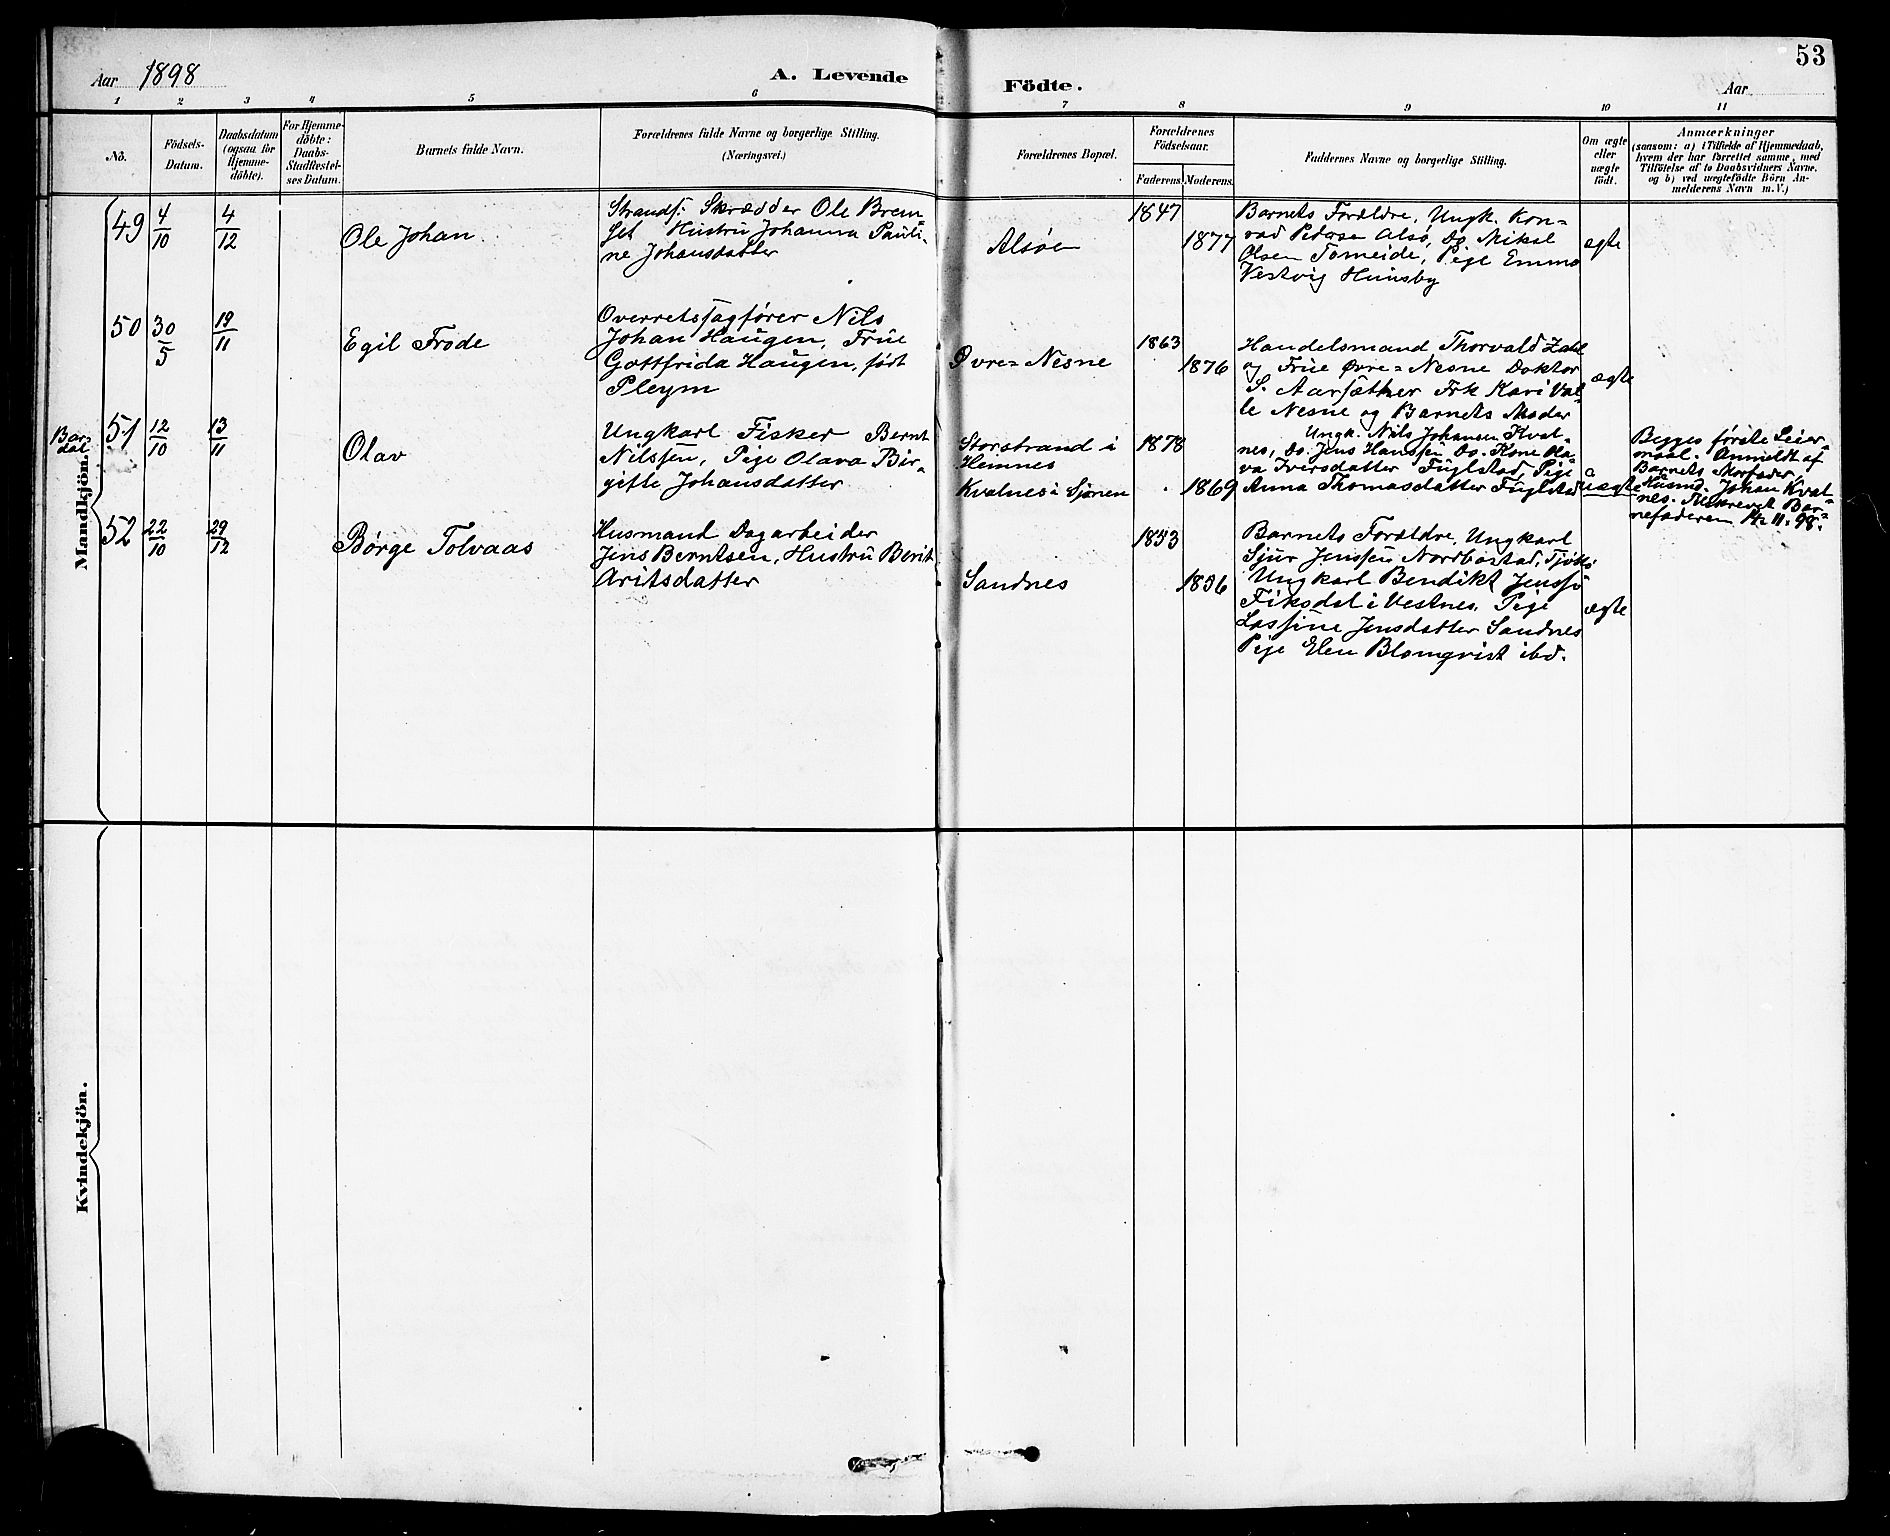 53
Aar 1898
A. Levende
Födte.
Aar
1 2 3 4 5 6 7 8 9 10 11
No.
Födsels-
Datum.
Daabsdatum
(ogsaa for
Hjemme-
döbte).
For Hjemme-
döbte:
Daabs-
Stadfæstel-
ses Datum.
Barnets fulde Navn.
Forældrenes fulde Navne og borgerlige Stilling.
(Næringsvei.)
Forældrenes Bopæl.
Forældrenes
Födselsaar.
Faderens. Moderens.
Faddernes Navne og borgerlige Stilling.
Om ægte
eller
uægte
födt.
Anmærkninger
(saasom: a) i Tilfælde af Hjemmedaab,
hvem der har forrettet samme, med
Tilföielse af to Daabsvidners Navne,
og b) ved uægtefödte Börn An-
melderens Navn m. V.)
Mandkjön.
49
4/10
4/12
Ole Johan
Strands. Skrædder Ole Brem-
set Hustru Johanna Pauli-
ne Johansdatter
Alsøe
1847
1877
Barnets Forældre, Ungk. Kon-
rad Peders Alsø, Do. Mikal
Olsen Tomeide, Pige Emma
Vestvig Hunsby
ægte
50
30/5
19/11
Egil Frode
Overretssagfører Nils
Johan Haugen, Frue
Gottfrida Haugen, født
Pleym
Øvre-Nesne
1863
1876
Handelsmand Thorvald Zahl
og Frue Øvre-Nesne Doktor
S. Aarsæther Frk Kari Val-
le Nesne og Barnets Moder
ægte
Bar-
dal
51
12/10
13/11
Olav
Ungkarl Fisker Bernt
Nilssen, Pige Olava Bir-
gitte Johansdatter
Storstrand i
Hemnes
Kvalnes i Sjonen
1878
1869
Ungk. Nils Johansen Kval-
nes, Do. Jens Hanssen Do. Kone Ola-
va Iversdatter Fuglstad, Pige
Anna Thomasdatter Fuglstad
uægte
Begges første Leier-
maal. Anmeldt af
Barnets Morfader,
Husmd. Johan Kval-
nes. Tilskrevet Bar-
nefaderen 14-11-98.
52
22/10
29/12
Børge Tolvaas
Husmand Dagarbeider
Jens Berntsen, Hustru Berit
Aritsdatter
Sandnes
1853
1856
Barnets Forældre, Ungkarl
Sjur Jenssen Nordbostad, Tjøtta
Ungkarl Bendikt Jenssø
Fiksdal i Vestnes. Pige
Lassine Jensdatter Sandnes
Pige Elen Blomqvist ibd.
ægte
Kvindekjön.